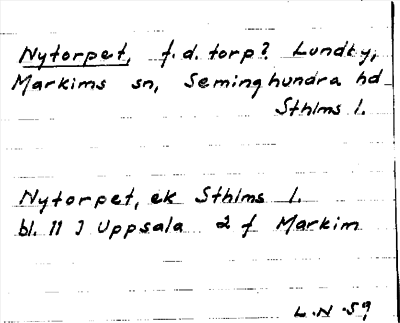 Nytorpet, f.d. torp? Lundby,
Markims sn, Seminghundra hd
Sthlms l.
Nytorpet, ek Sthlms l.
bl. 11 J Uppsala 2 f Markim
L.N. 59